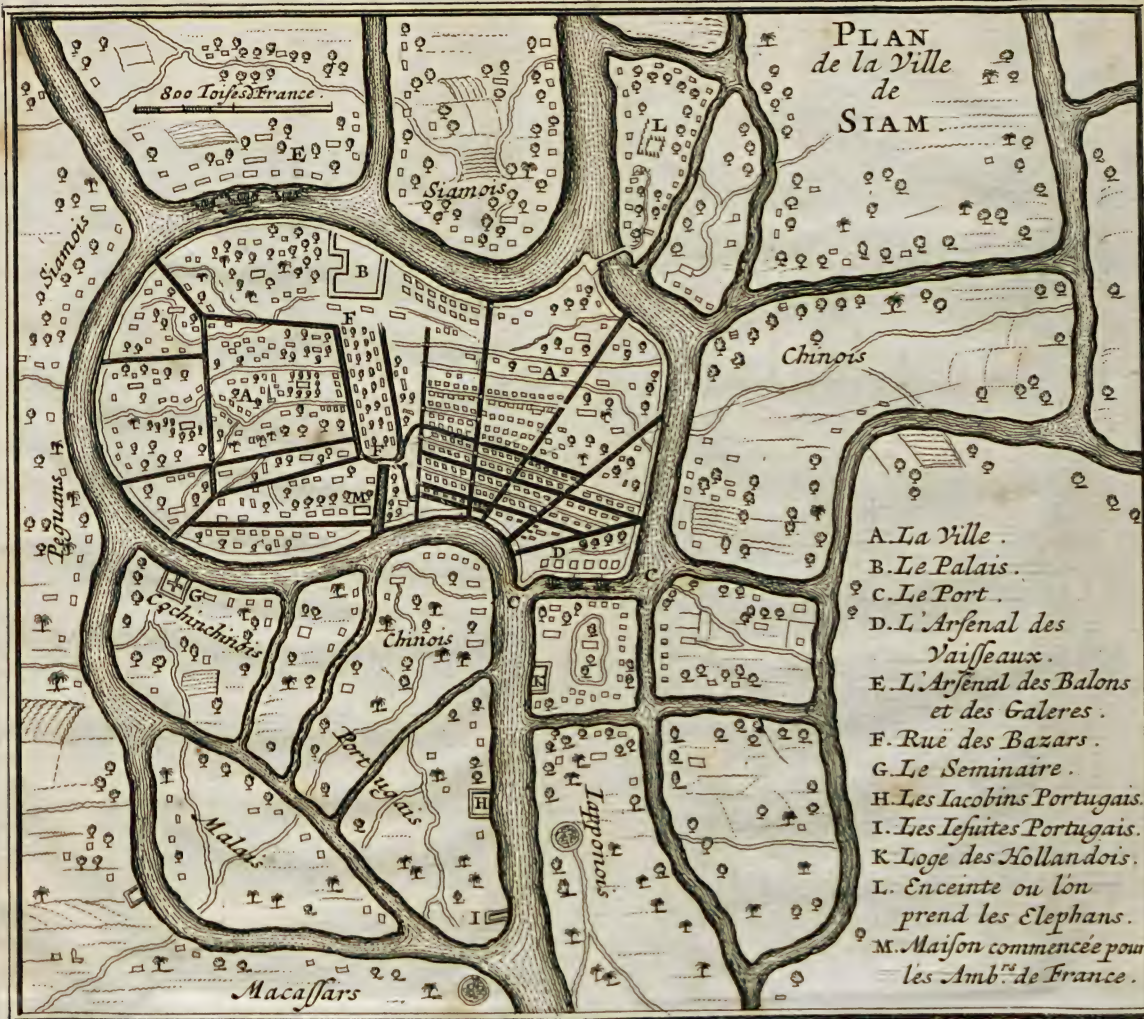 PLAN
de la Ville
de
SIAM.
800 Toises de France.
E
L
Siamois
Siamois
B
F
A
A
Chinois
F
M
Peguans
D
C
C
G
Cochinchinois
Chinois
K
Portugais
H
Malais
Iapponois
I
Macaſſars
A. La Ville.
B. Le Palais.
C. Le Port.
D. L'Arſenal des
Vaiſſeaux.
E. L'Arſenal des Balons
et des Galeres.
F. Ruë des Bazars.
G. Le Seminaire.
H. Les Iacobins Portugais.
I. Les Ieſuites Portugais.
K. Loge des Hollandois.
L. Enceinte ou l'on
prend les Elephans.
M. Maiſon commencée pour
les Amb.rs de France.